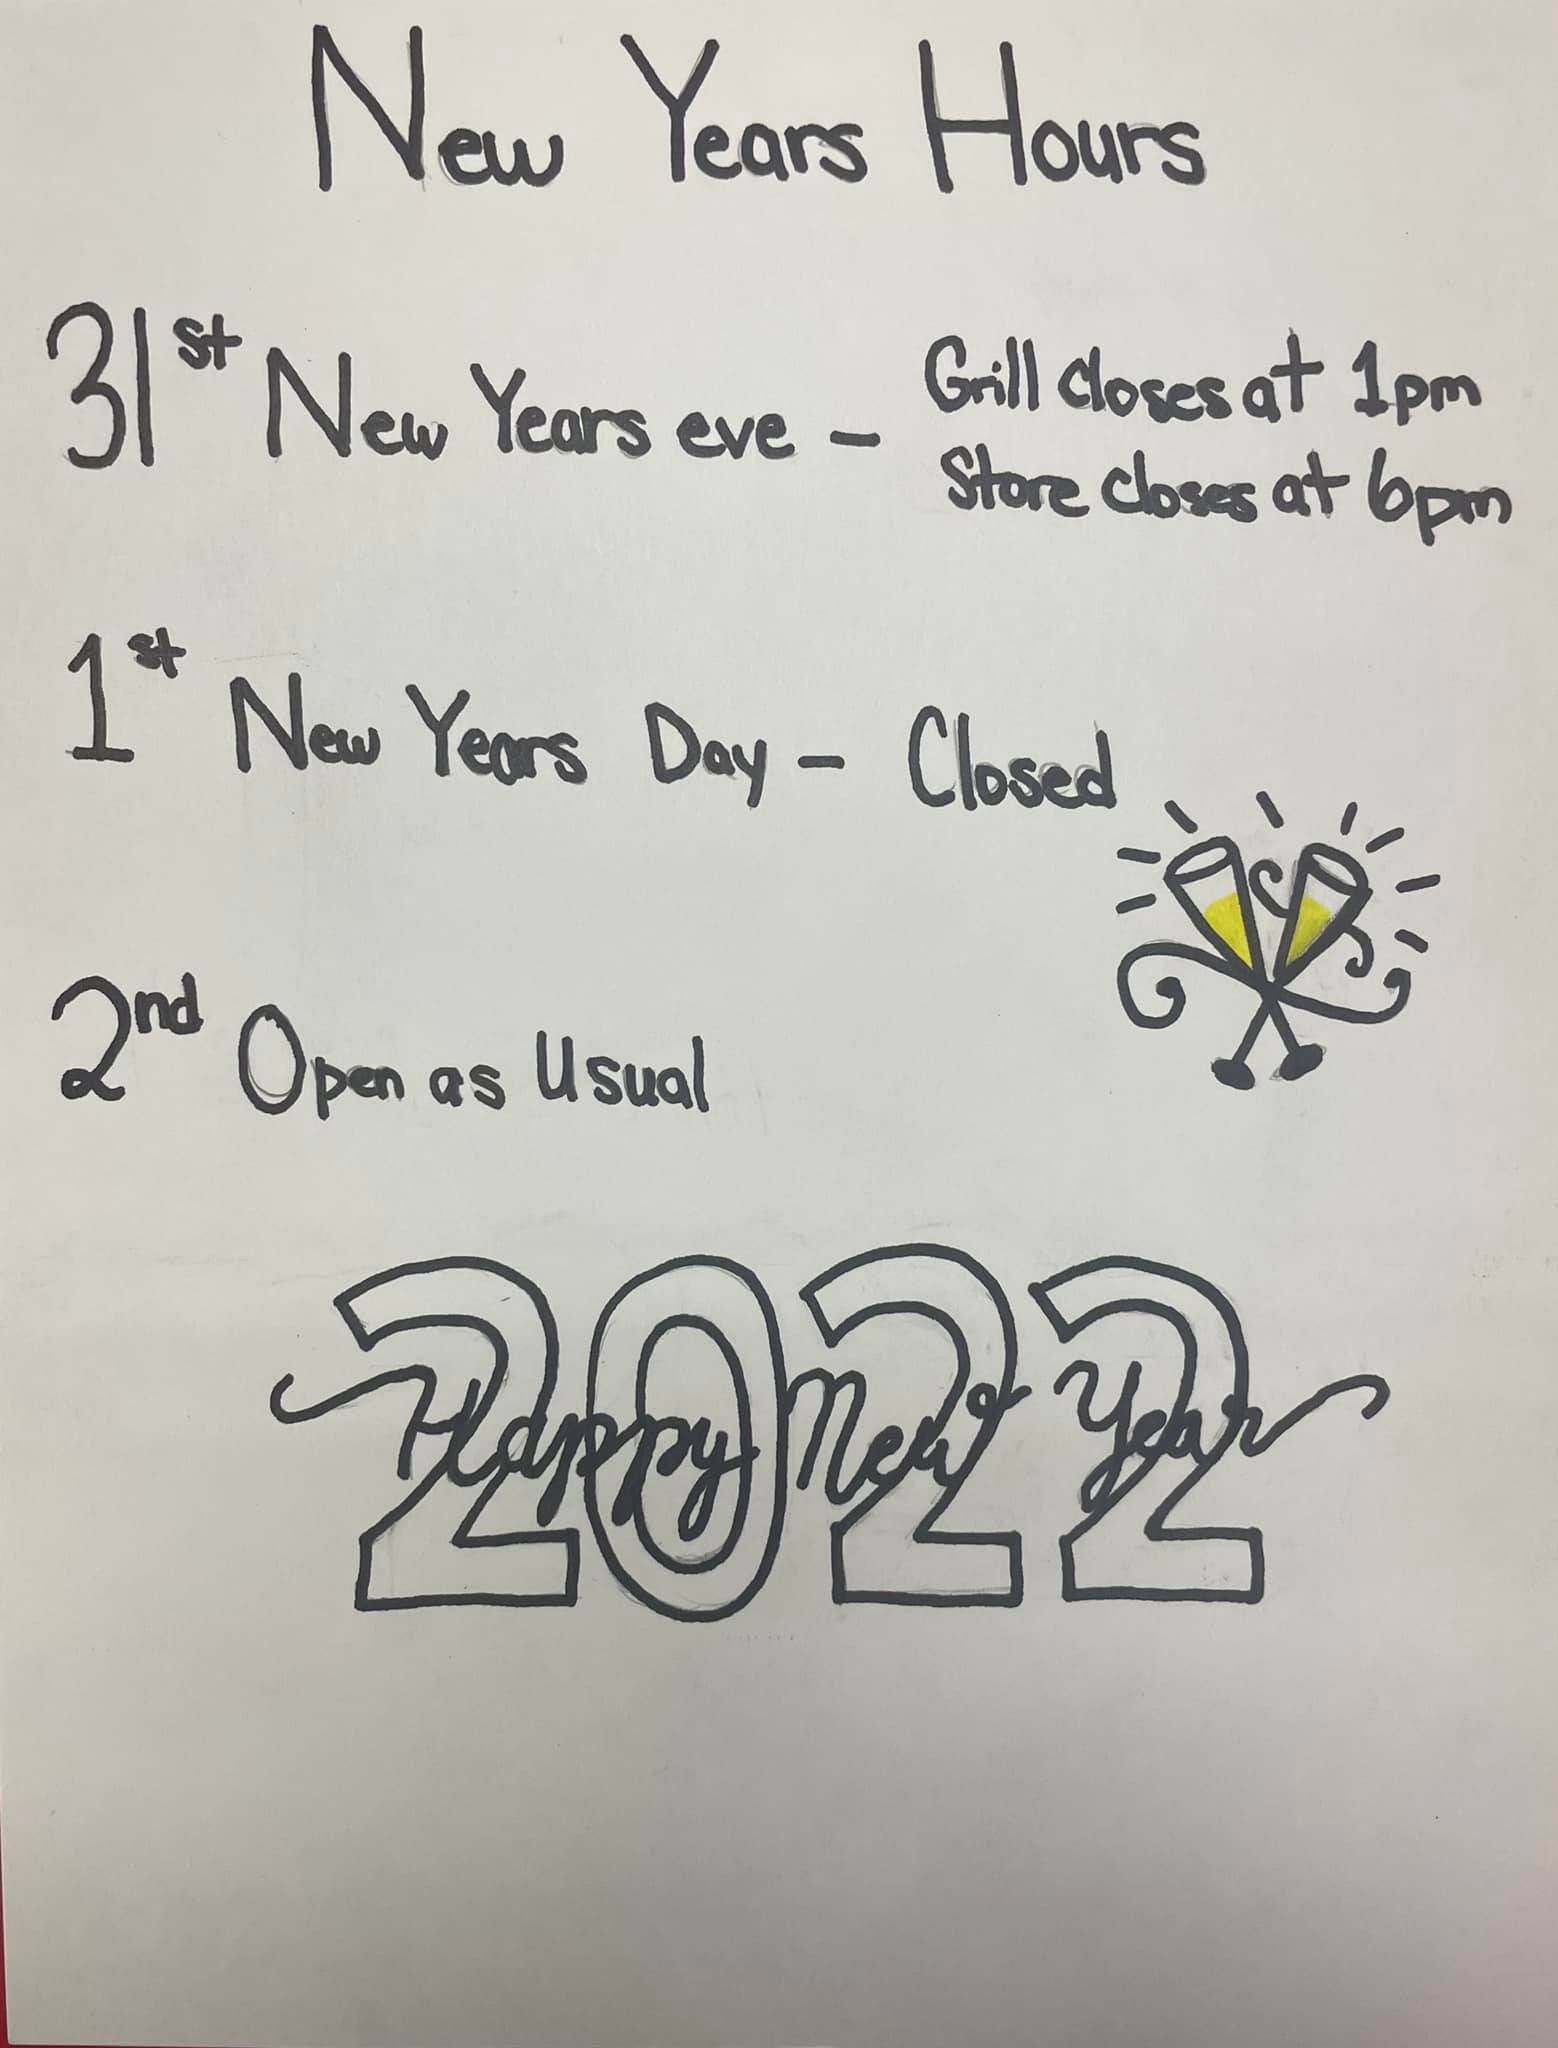 New Years Hours
31st New Years eve - Grill closes at 1pm
Store closes at 6pm
1st New Years Day - Closed
2nd Open as Usual
2022
Happy New Year